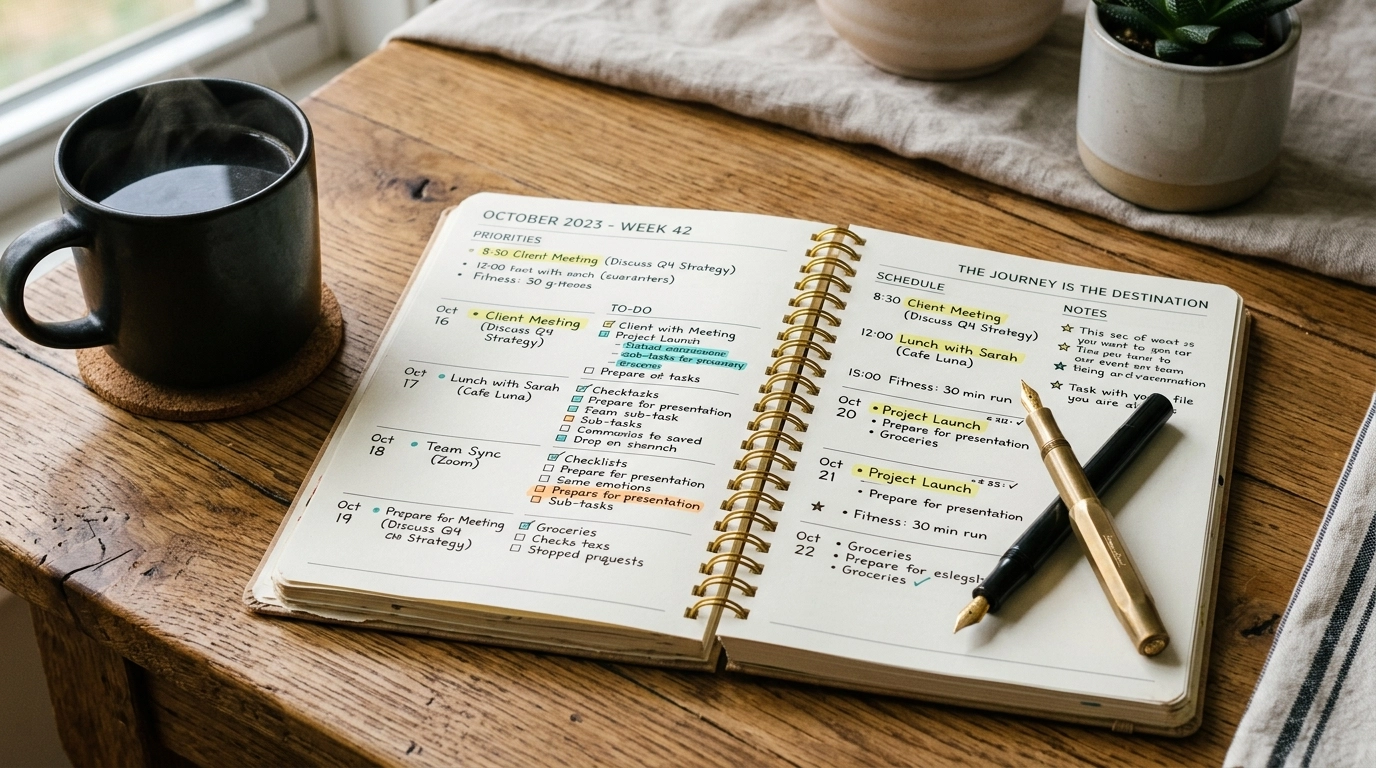 OCTOBER 2023 - WEEK 42
PRIORITIES
8-30 Client Meeting (Discuss Q4 Strategy)
12-00 with
Fitness: 30
Oct 16
Client Meeting
(Discuss Q4
Strategy)
Oct 17
Lunch with Sarah
(Cafe Luna)
Oct 18
Team Sync
(Zoom)
Oct 19
Prepare for Meeting
(Discuss Q4
Strategy)
TO-DO
Client with Meeting
Project Launch
sub-tasks for
Prepare tasks
Prepare for presentation
sub-task
Sub-tasks
saved
Drop on
Checklists
Prepare for presentation
Same emotions
Prepars for presentation
Sub-tasks
Groceries
Checks
Stopped
THE JOURNEY IS THE DESTINATION
SCHEDULE
8:30 Client Meeting
(Discuss Q4 Strategy)
12:00 Lunch with Sarah
(Cafe Luna)
15:00 Fitness: 30 min run
Oct 20
Project Launch
Prepare for presentation
Groceries
Oct 21
Project Launch
Prepare for presentation
Fitness: 30 min run
Oct 22
Groceries
Prepare for
Groceries
NOTES
This sec of
you want to
team
Task with file
you